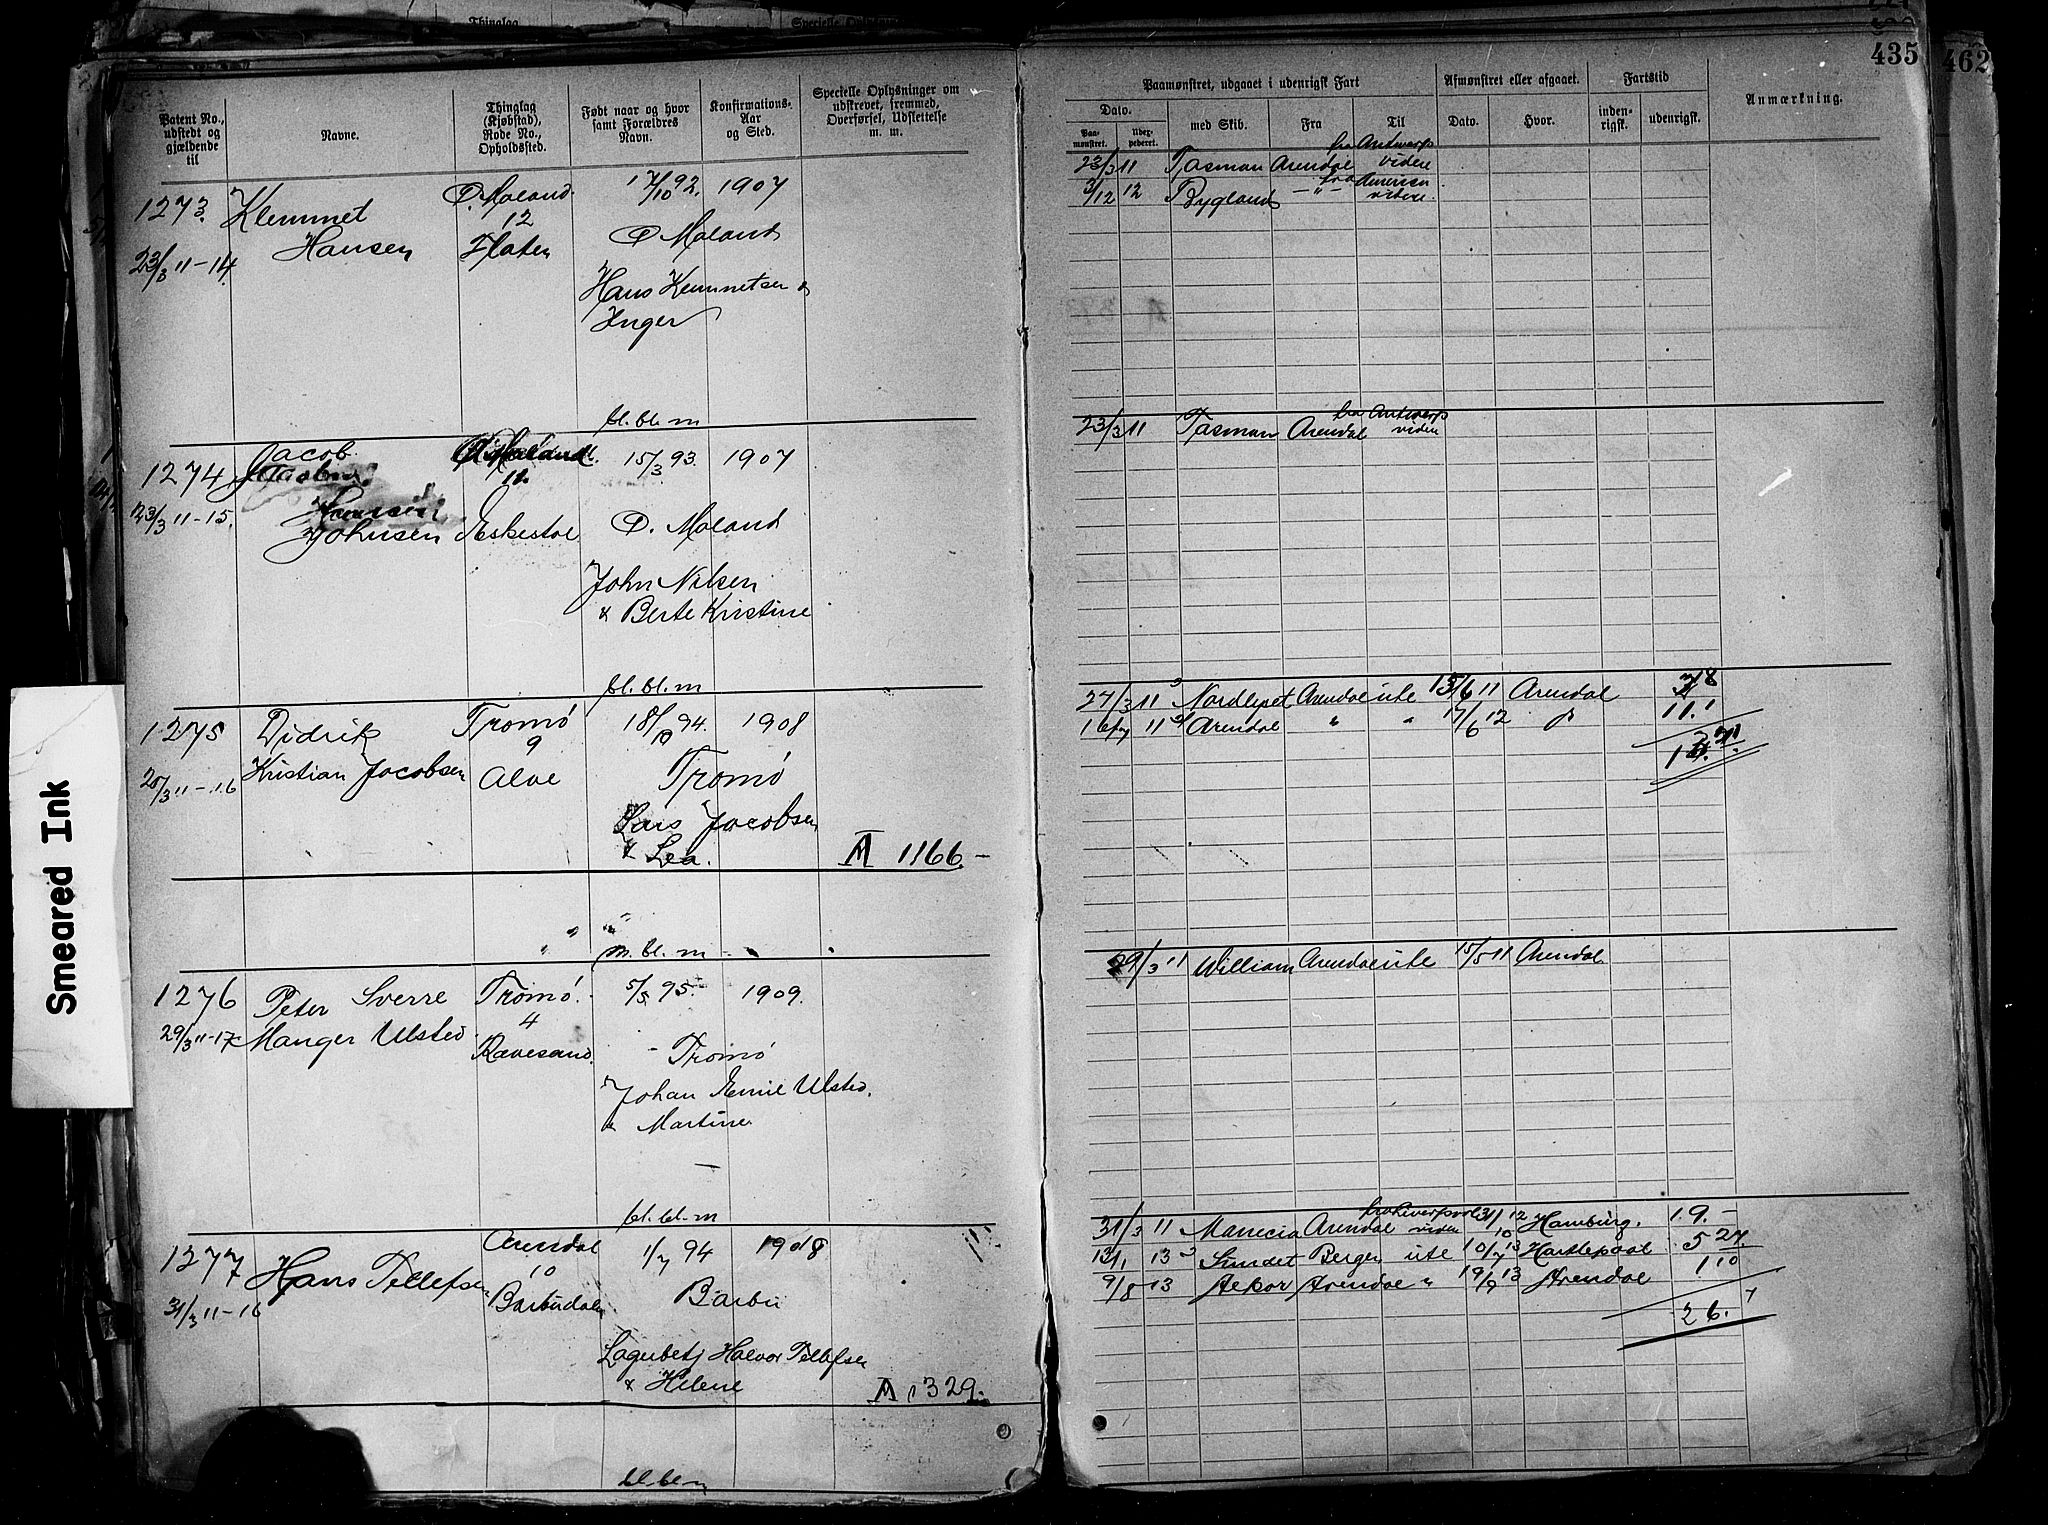 435
462
Smeared Ink
Patent No., udstedt og gjældende til
Navne.
Thinglag (Kjøbstad), Rode No., Opholdssted.
Født naar og hvor samt Forældres Navn.
Konfirmations-Aar og Sted.
Specielle Oplysninger om udskrevet, fremmed, Overførsel, Udslettelse m. m.
Paamønstret, udgaaet i udenrigsk Fart
Afmønstret eller afgaaet.
Fartstid
Anmærkning.
Dato.
Paa-mønstret.
med Skib.
Fra
Til
Dato.
Hvor.
inden-rigsk.
udenrigsk.
1273. Klemmet Hansen
23/3 11-14.
Ø. Moland. 12 Flaten
17/10 92. 1907
Ø Moland
Hans Klemmetsen &
Inger
bl. bl. m
23/3 11 Tasman Arendal fra Antwerp videre
3/12 12 Bygland - " - fra America videre.
1274 Jacob Johnsen
23/3 11-15.
Ø. Moland. 11. Eskestøl
15/3 93. 1907
Ø. Moland
John Nilsen
& Berte Kirstine
bl. bl. m
23/3 11 Tasman Arendal fra Antwerp videre
1275 Didrik Kristian Jacobsen
Tromø 9 Alve
18/10 94. 1908
Tromø
Lars Jacobsen
& Lea.
1166.-
m. bl. m
27/3 11 Nordlyset Arendal ute 15/6 11 Arendal
11 Arendal " " 17/6 12 11.1
1276 Peter Sverre Manger Ulsted
29/3 11-17
Tromø. 4 Ravesand.
5/5 95. 1909.
Tromø
Johan Emil Ulsted.
& Martine
bl. bl. m
29/3 11 William Arendal ute 15/5 11 Arendal
1277 Hans Tellefsen
31/3 11-16
Arendal 10 Barbudalen
1/7 94 1908
Barbu
Lagerbetj Halvor Tellefsen
& Helene
1329.-
bl. bl. m
31/3 11 Arendal fra Liverpool viden 31/10 12 Hamburg. 1.9.-
13/1 13 Sundet Bergen ute 10/7 13 Hartlepool 5 27.
9/8 13 Arendal " 19/9 13 Arendal 1 10
26. 7